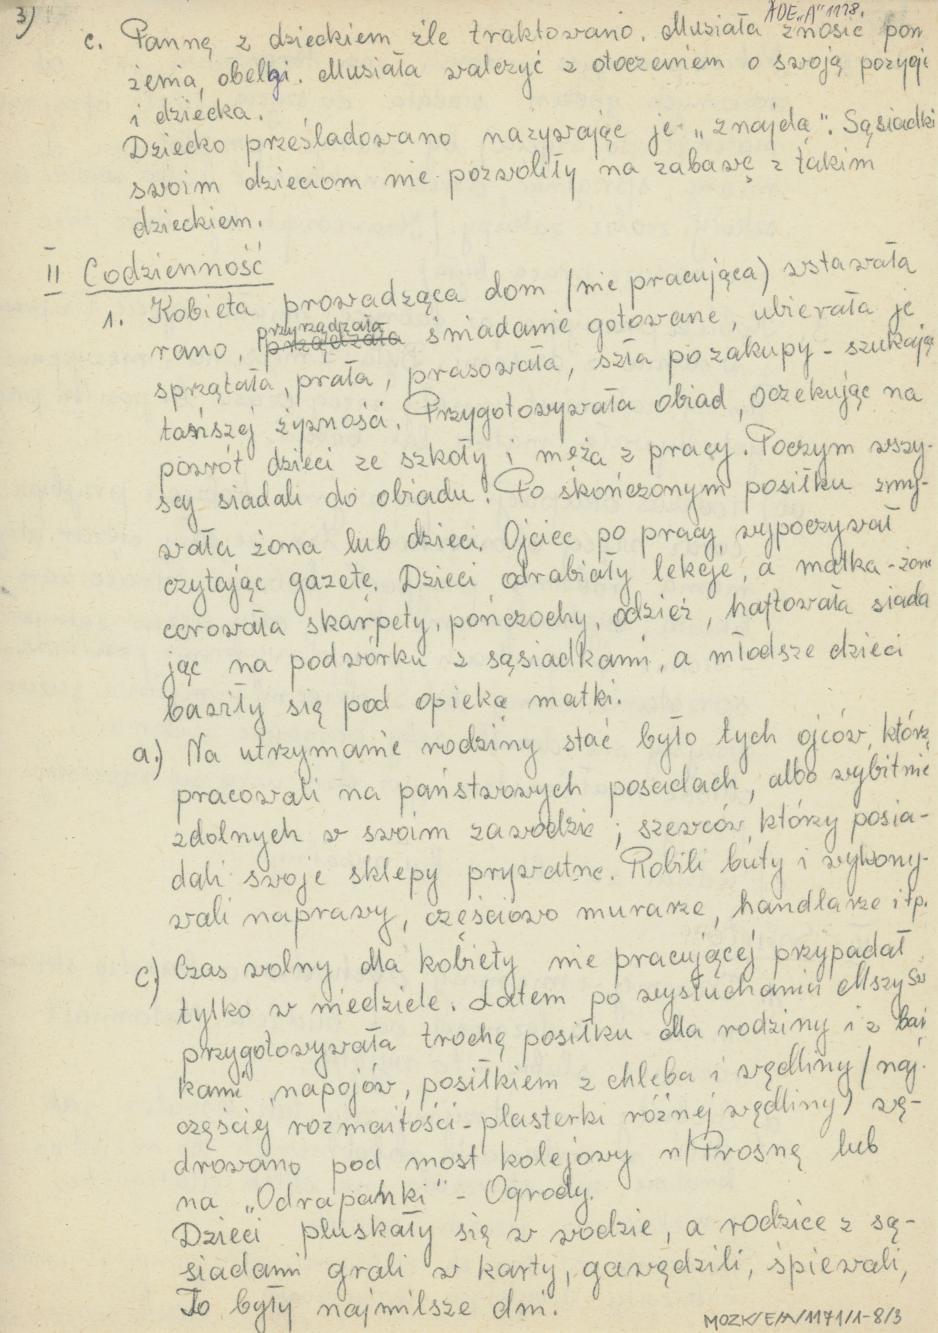 3) ADE „A" 1178.
c. Pannę z dzieckiem źle traktowano. Musiała znosić pon
żenia, obelgi. Musiała walczyć z otoczeniem o swoją pozycję
i dziecka.
Dziecko prześladowano nazywając je „znajdą". Sąsiadki
swoim dzieciom nie pozwoliły na zabawę z takim
dzieckiem.
II Codzienność
1. Kobieta prowadząca dom (nie pracująca) wstawała
rano, przyrządzała śniadanie gotowane, ubierała je
sprzątała, prała, prasowała, szła po zakupy - szukając
tańszej żywności. Przygotowywała obiad, oczekując na
powrót dzieci ze szkoły i męża z pracy. Poczym wszy-
scy siadali do obiadu. Po skończonym posiłku zmy-
wała żona lub dzieci. Ojciec po pracy wypoczywał
czytając gazetę. Dzieci odrabiały lekcje, a matka - żona
cerowała skarpety, pończochy, odzież, haftowała siada
jąc na podwórku z sąsiadkami, a młodsze dzieci
bawiły się pod opieką matki.
a.) Na utrzymanie rodziny stać było tych ojców, którzy
pracowali na państwowych posadach, albo wybitnie
zdolnych w swoim zawodzie; szewców, którzy posia-
dali swoje sklepy prywatne. Robili buty i wykony-
wali naprawy, częściowo murarze, handlarze itp.
c) Czas wolny dla kobiety nie pracującej przypadał
tylko w niedziele. Latem po wysłuchaniu Mszy Św
przygotowywała trochę posiłku dla rodziny i z bań
kami napojów, posiłkiem z chleba i wędliny (naj-
częściej rozmaitości - plasterki różnej wędliny) wę-
drowano pod most kolejowy n/Prosną lub
na „Odrapańki" - Ogrody.
Dzieci pluskały się w wodzie, a rodzice z są-
siadami grali w karty, gawędzili, śpiewali,
To były najmilsze dni.
MOZK/E/A/1171/1-8/3